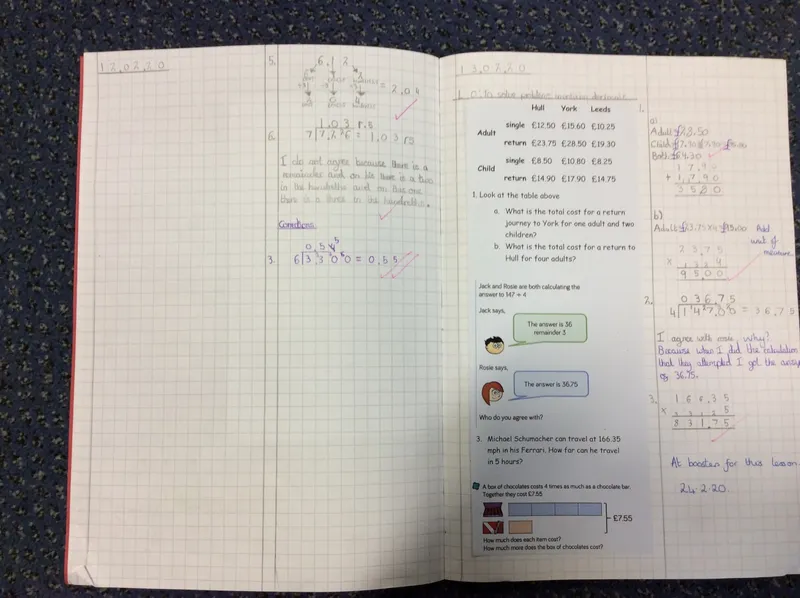 12.02.20
5.
6.12
= 2.04
1.03 r.5
6.
7 7.226 = 1.03 r5
I do not agree because there is a
remainder and on his there is a two
in the hundredths and on this one
there is a three in the hundredths.
Corrections
3.
6 3.300 = 0.55
13.02.20
L.O: To solve problems involving decimals
Hull York Leeds
Adult single £12.50 £15.60 £10.25
return £23.75 £28.50 £19.30
Child single £8.50 £10.80 £8.25
return £14.90 £17.90 £14.75
1. Look at the table above
a. What is the total cost for a return
journey to York for one adult and two
children?
b. What is the total cost for a return to
Hull for four adults?
Jack and Rosie are both calculating the
answer to 147 ÷ 4
Jack says,
The answer is 36
remainder 3
Rosie says,
The answer is 36.75
Who do you agree with?
3. Michael Schumacher can travel at 166.35
mph in his Ferrari. How far can he travel
in 5 hours?
A box of chocolates costs 4 times as much as a chocolate bar.
Together they cost £7.55
£7.55
How much does each item cost?
How much more does the box of chocolates cost?
1.
a)
Adult £28.50
Both £64.30
17.90
+ 17.90
35.80
b)
Add
unit of
measure
23.75
x 4
95.00
2.
036.75
4 147.00 = 36.75
I agree with rosie, why?
Because when I did the calculation
that they attempted I got the answer
of 36.75.
3.
166.35
x 5
831.75
At booster for this lesson.
24.2.20.